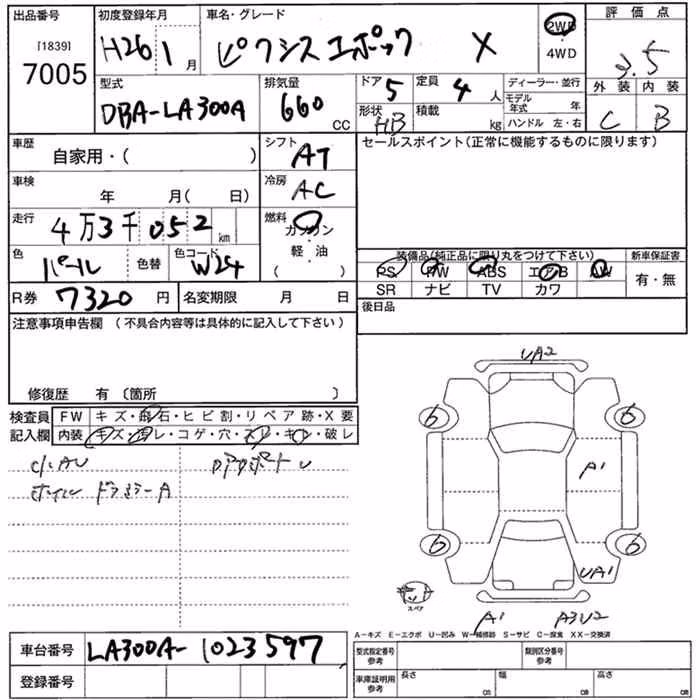 出品番号
[1839]
7005
初度登録年月
H26 1 月
車名・グレード
ピクシスエポック X
2WD
4WD
評価点
3.5
型式
DBA-LA300A
排気量
660 CC
ドア 5
定員 4 人
形状 HB
積載 kg
ディーラー・並行
モデル年式 年
ハンドル 左・右
外装 内装
C B
車歴
自家用・( )
シフト
AT
車検
年 月( 日)
冷房
AC
走行
4万3千052 km
燃料
ガソリン
軽・油
( )
色
パール
色替
色コード
W24
R券 7320 円
名変期限 月 日
セールスポイント(正常に機能するものに限ります)
装備品(純正品に限り丸をつけて下さい)
新車保証書
PS PW ABS エアB AW
SR ナビ TV カワ
有・無
後日品
注意事項申告欄 (不具合内容等は具体的に記入して下さい)
修復歴 有 〔箇所 〕
検査員
記入欄
FW キズ・飛石・ヒビ割・リペア跡・X要
内装 キズ・汚レ・コゲ・穴・スレ・キレ・破レ
UA2
6 6
A1
6 6
UA1
スペア
A1 A3U2
A-キズ E-エクボ U-凹み W-補修跡 S-サビ C-腐食 XX-交換済
車台番号 LA300A-1023597
登録番号
型式指定番号
参考
類別区分番号
参考
車庫証明用
参考
長さ cm
幅 cm
高さ cm